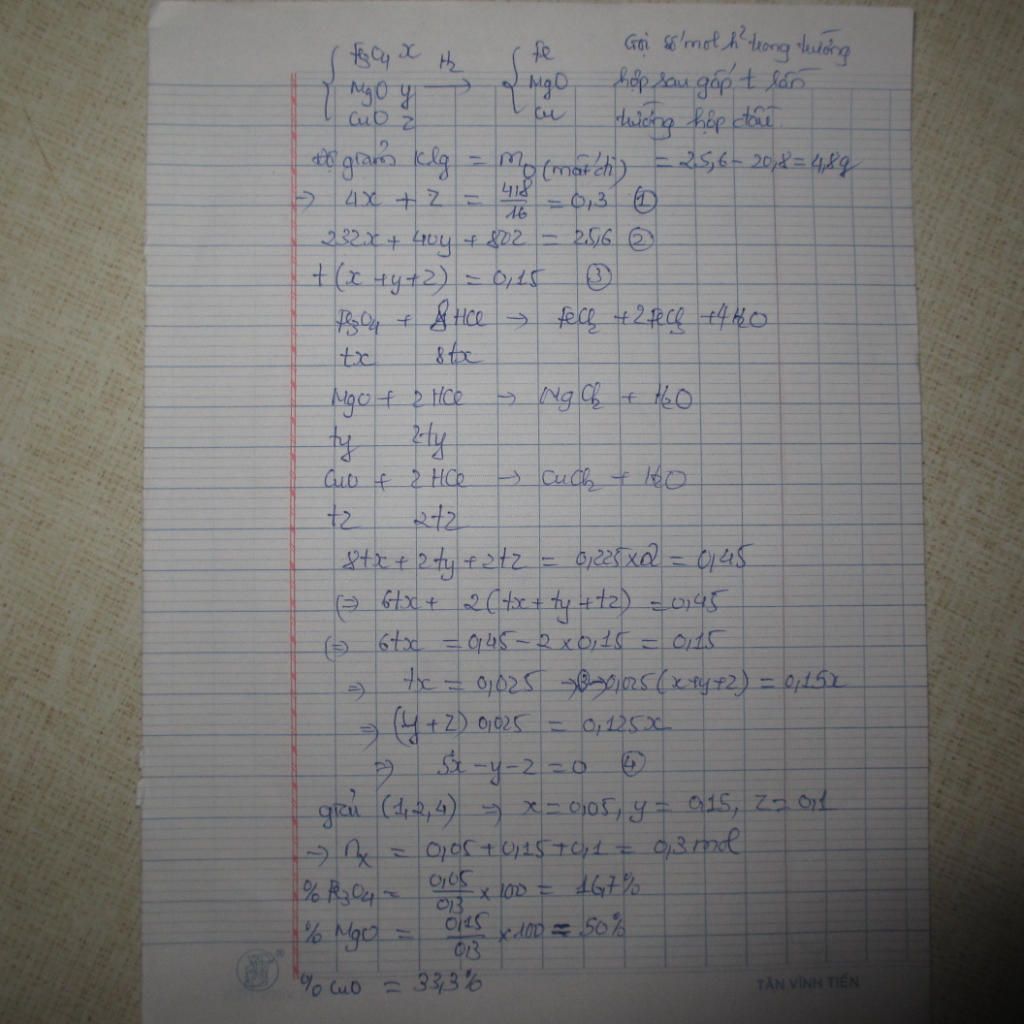 Fe₃O₄ x
MgO y
CuO z
H₂ →
Fe
MgO
Cu
Gọi số mol h² trong trường
hợp sau gấp t lần
trường hợp đầu.
Độ giảm klg = mO (mất đi) = 25,6 - 20,8 = 4,8g
→ 4x + z = 4,8/16 = 0,3 ①
232x + 40y + 80z = 25,6 ②
t(x + y + z) = 0,15 ③
Fe₃O₄ + 8HCl → FeCl₂ + 2FeCl₃ + 4H₂O
tx 8tx
MgO + 2HCl → MgCl₂ + H₂O
ty 2ty
CuO + 2HCl → CuCl₂ + H₂O
tz 2tz
8tx + 2ty + 2tz = 0,225 x 2 = 0,45
(=) 6tx + 2(tx + ty + tz) = 0,45
(=) 6tx = 0,45 - 2 x 0,15 = 0,15
=> tx = 0,025 →③→ 0,025(x+y+z) = 0,15x
=> (y + z) 0,025 = 0,125x
=> 5x - y - z = 0 ④
giải (1,2,4) → x = 0,05, y = 0,15, z = 0,1
→ nx = 0,05 + 0,15 + 0,1 = 0,3 mol
% Fe₃O₄ = 0,05/0,3 x 100 = 16,7%
% MgO = 0,15/0,3 x 100 = 50%
% CuO = 33,3%
TÂN VĨNH TIẾN